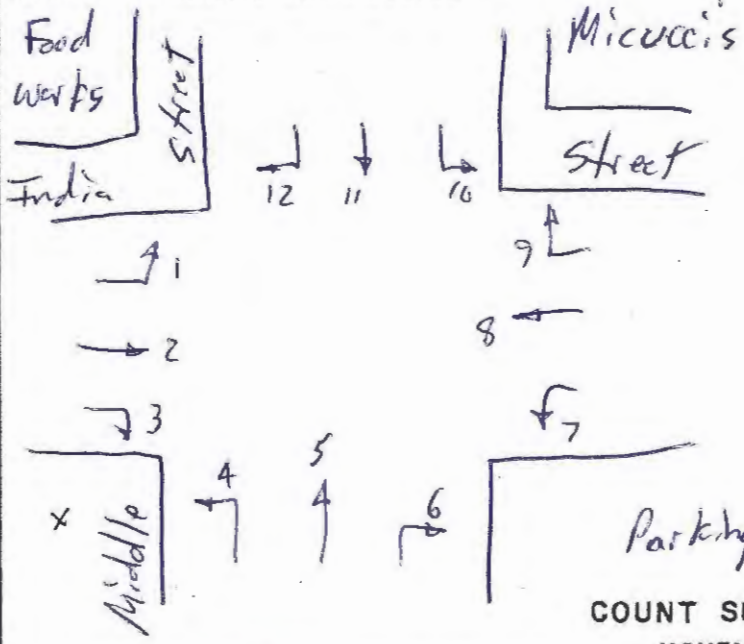 Food Works
Street
Micucci's
India
Street
12 11 10
1
9
2
8
3
7
4 5 6
x
Middle
Parking
COUNT